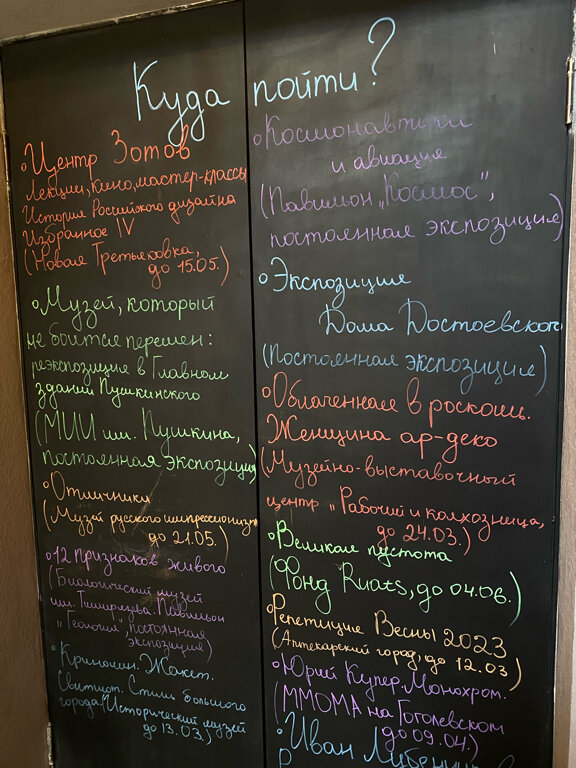 Куда пойти?
• Центр Зотов
Лекции, кино, мастер-классы
История Российского дизайна
Избранное IV
(Новая Третьяковка,
до 15.05.)
• Музей, который
не боится перемен:
реэкспозиция в Главном
здании Пушкинского
(МИИ им. Пушкина,
постоянная экспозиция)
• Отличники
(Музей русского импрессионизма
до 21.05.)
• 12 признаков живого
(Биологический музей
им. Тимирязева. Павильон
"Геология", постоянная
экспозиция)
• Кринолин. Жакет.
Свитшот. Стили большого
города. (Исторический музей
до 13.03.)
• Космонавтики
и авиация
(Павильон „Космос",
постоянная экспозиция)
• Экспозиция
Дома Достоевского
(Постоянная экспозиция)
• Облаченная в роскошь.
Женщина ар-деко
(Музейно-выставочный
центр „Рабочий и колхозница,
до 24.03.)
• Великая пустота
(Фонд Ruarts, до 04.06.)
• Репетиция Весны 2023
(Аптекарский город, до 12.03)
• Юрий Купер. Монохром.
(ММОМА на Гоголевском
до 09.04.)
• Иван